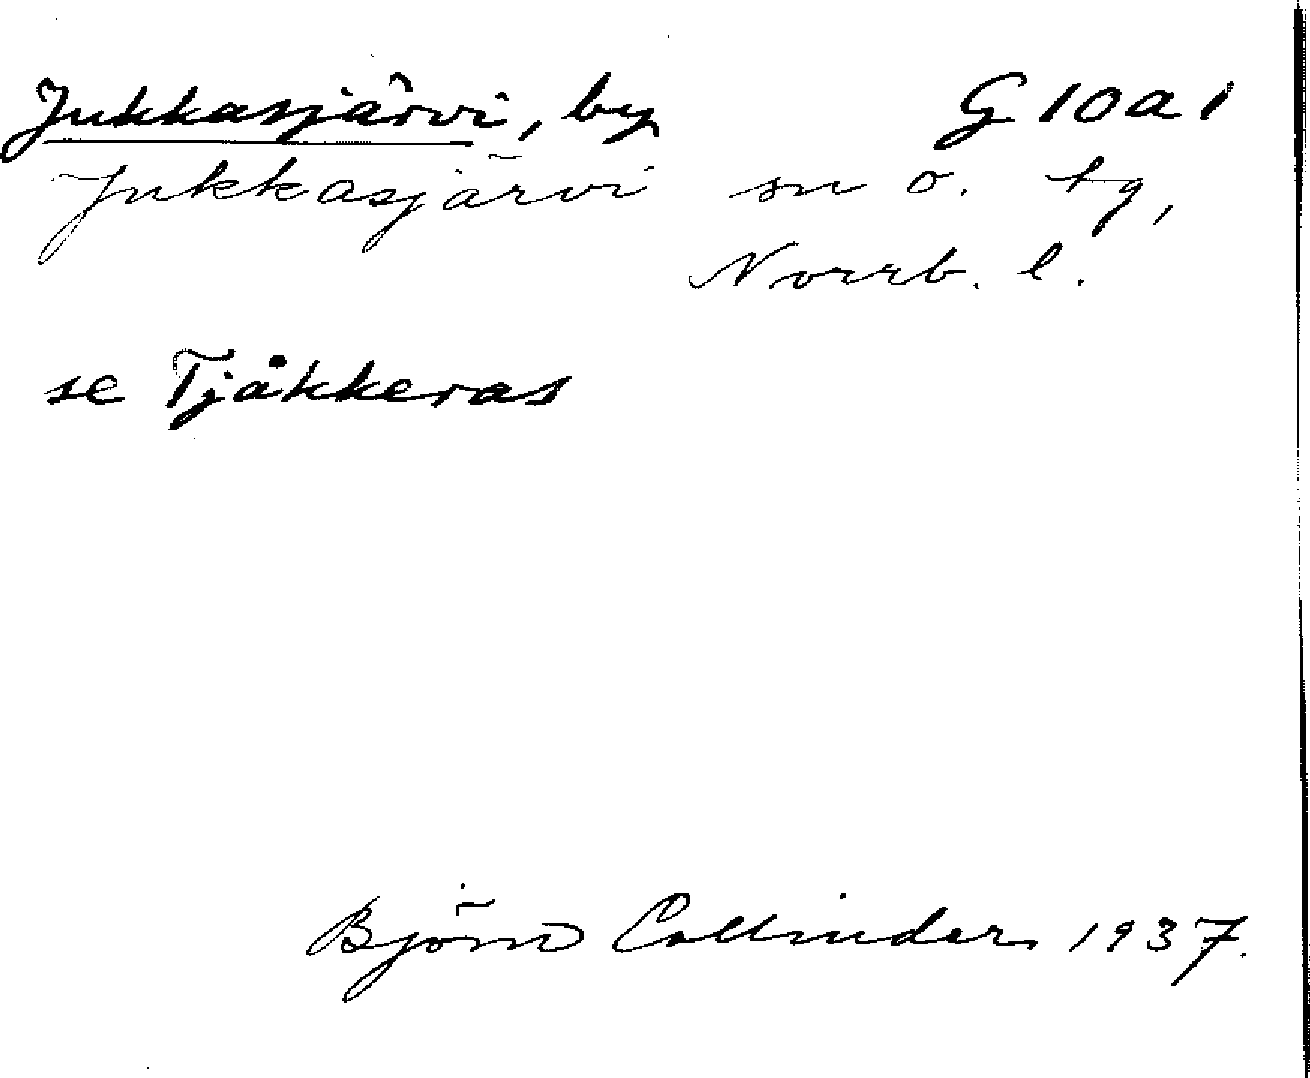 Jukkasjärvi, by G 10 a 1
Jukkasjärvi sn o. tg,
Norrb. l.
se Tjåkkeras
Björn Collinder 1937.